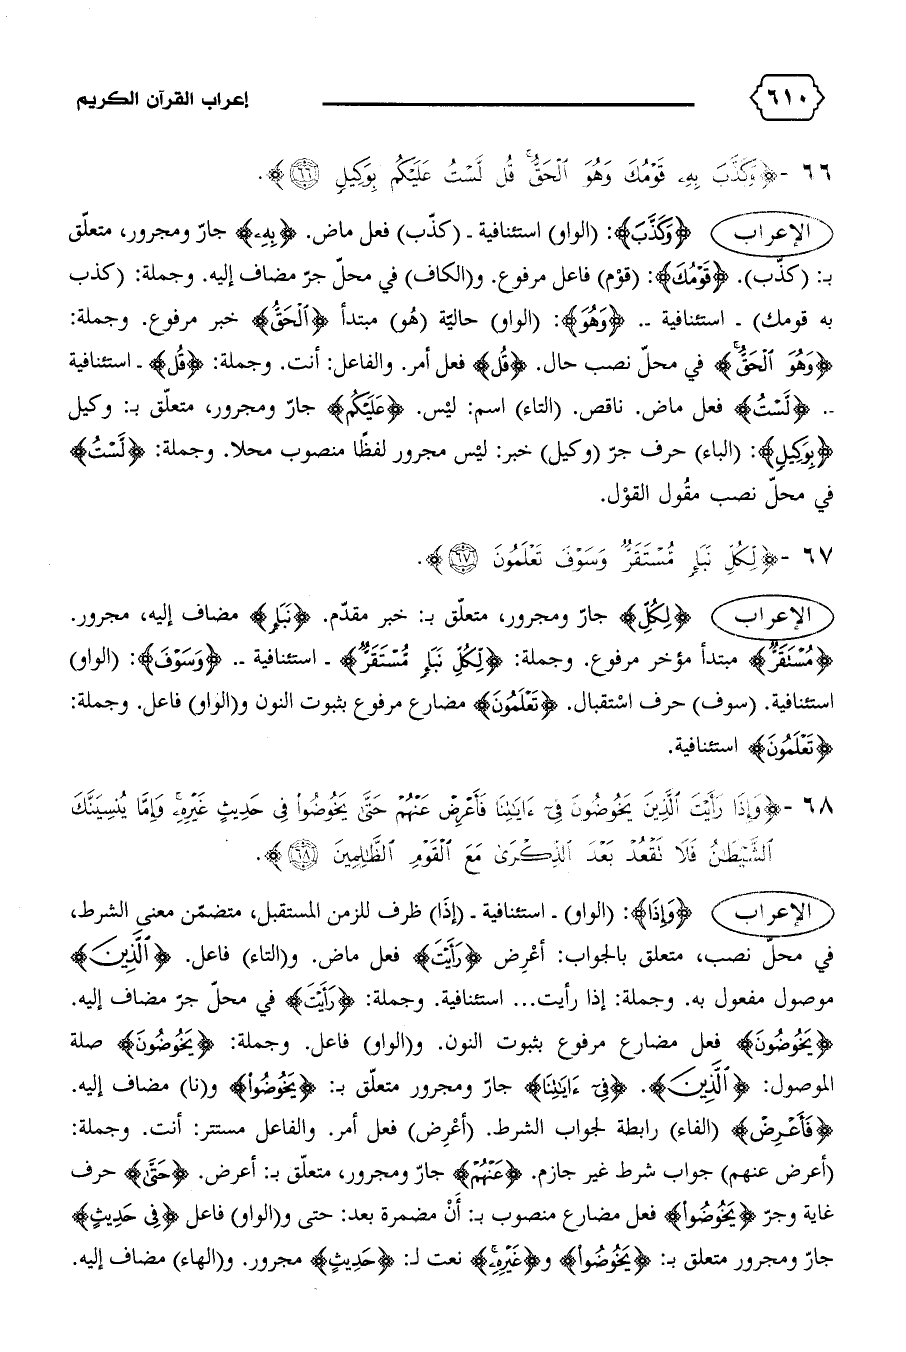 ٦١٠ إعراب القرآن الكريم
٦٦ - ﴿وَكَذَّبَ بِهِۦ قَوْمُكَ وَهُوَ ٱلْحَقُّ ۚ قُل لَّسْتُ عَلَيْكُم بِوَكِيلٍ ٦٦﴾.
الإعراب ﴿وَكَذَّبَ﴾: (الواو) استئنافية ـ (كذّب) فعل ماض. ﴿بِهِۦ﴾ جارّ ومجرور، متعلّق
بـ: (كذّب). ﴿قَوْمُكَ﴾: (قوْم) فاعل مرفوع. و(الكاف) في محلّ جرّ مضاف إليه. وجملة: (كذب
به قومك) ـ استئنافية .. ﴿وَهُوَ﴾: (الواو) حاليّة (هُو) مبتدأ ﴿ٱلْحَقُّ﴾ خبر مرفوع. وجملة:
﴿وَهُوَ ٱلْحَقُّ ۚ﴾ في محلّ نصب حال. ﴿قُل﴾ فعل أمر. والفاعل: أنت. وجملة: ﴿قُل﴾ ـ استئنافية
.. ﴿لَّسْتُ﴾ فعل ماض. ناقص. (التاء) اسم: ليْس. ﴿عَلَيْكُم﴾ جارّ ومجرور، متعلّق بـ: وكيل
﴿بِوَكِيلٍ﴾: (الباء) حرف جرّ (وكيل) خبر: ليْس مجرور لفظًا منصوب محلا. وجملة: ﴿لَّسْتُ﴾
في محلّ نصب مقُول القوْل.
٦٧ - ﴿لِّكُلِّ نَبَإٍ مُّسْتَقَرٌّ ۚ وَسَوْفَ تَعْلَمُونَ ٦٧﴾.
الإعراب ﴿لِّكُلِّ﴾ جارّ ومجرور، متعلّق بـ: خبر مقدّم. ﴿نَبَإٍ﴾ مضاف إليه، مجرور.
﴿مُّسْتَقَرٌّ ۚ﴾ مبتدأ مؤخر مرفوع. وجملة: ﴿لِّكُلِّ نَبَإٍ مُّسْتَقَرٌّ ۚ﴾ ـ استئنافية .. ﴿وَسَوْفَ﴾: (الواو)
استئنافية. (سوف) حرف اسْتقبال. ﴿تَعْلَمُونَ﴾ مضارع مرفوع بثبوت النون و(الواو) فاعل. وجملة:
﴿تَعْلَمُونَ﴾ استئنافية.
٦٨ - ﴿وَإِذَا رَأَيْتَ ٱلَّذِينَ يَخُوضُونَ فِىٓ ءَايَـٰتِنَا فَأَعْرِضْ عَنْهُمْ حَتَّىٰ يَخُوضُوا۟ فِى حَدِيثٍ غَيْرِهِۦ ۚ وَإِمَّا يُنسِيَنَّكَ
ٱلشَّيْطَـٰنُ فَلَا تَقْعُدْ بَعْدَ ٱلذِّكْرَىٰ مَعَ ٱلْقَوْمِ ٱلظَّـٰلِمِينَ ٦٨﴾.
الإعراب ﴿وَإِذَا﴾: (الواو) ـ استئنافية ـ (إذَا) ظرف للزمن المستقبل، متضمّن معنى الشرط،
في محلّ نصب، متعلق بالجواب: أعْرِض ﴿رَأَيْتَ﴾ فعل ماض. و(التاء) فاعل. ﴿ٱلَّذِينَ﴾
موصول مفعول به. وجملة: إذا رأيت... استئنافية. وجملة: ﴿رَأَيْتَ﴾ في محلّ جرّ مضاف إليه.
﴿يَخُوضُونَ﴾ فعل مضارع مرفوع بثبوت النون. و(الواو) فاعل. وجملة: ﴿يَخُوضُونَ﴾ صلة
الموصول: ﴿ٱلَّذِينَ﴾. ﴿فِىٓ ءَايَـٰتِنَا﴾ جارّ ومجرور متعلّق بـ: ﴿يَخُوضُوا۟﴾ و(نا) مضاف إليه.
﴿فَأَعْرِضْ﴾ (الفاء) رابطة لجواب الشرط. (أعْرِض) فعل أمر. والفاعل مستتر: أنت. وجملة:
(أعرض عنهم) جواب شرط غير جازم. ﴿عَنْهُمْ﴾ جارّ ومجرور، متعلّق بـ: أعرض. ﴿حَتَّىٰ﴾ حرف
غاية وجرّ ﴿يَخُوضُوا۟﴾ فعل مضارع منصوب بـ: أَنْ مضمرة بعد: حتى و(الواو) فاعل ﴿فِى حَدِيثٍ﴾
جارّ ومجرور متعلق بـ: ﴿يَخُوضُوا۟﴾ و﴿غَيْرِهِۦ ۚ﴾ نعت لـ: ﴿حَدِيثٍ﴾ مجرور. و(الهاء) مضاف إليه.